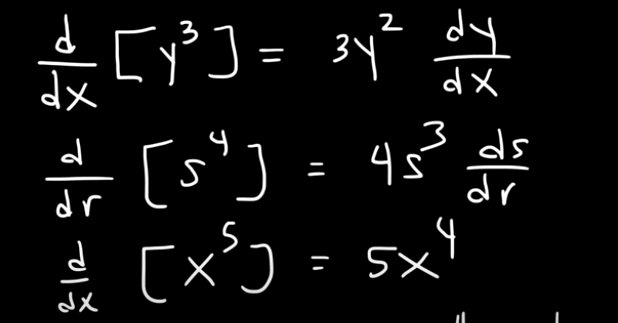 d/dx [y³] = 3y² dy/dx
d/dr [s⁴] = 4s³ ds/dr
d/dx [x⁵] = 5x⁴